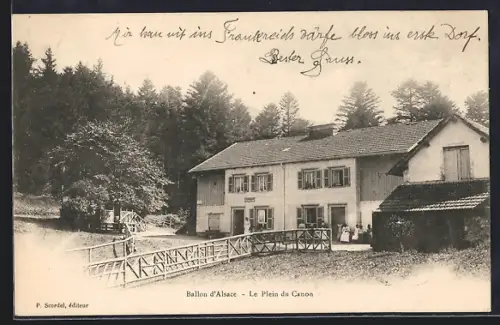 Mir han nit ins Frankreich därfe bloss ins erste Dorf.
Bester Gruss.
Ballon d'Alsace - Le Plein du Canon
P. Scordel, éditeur